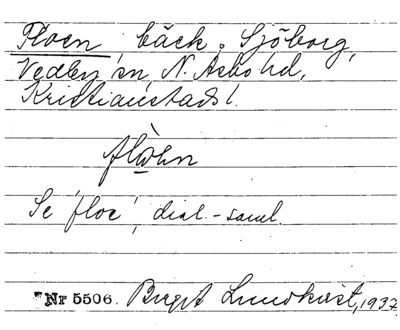 Floen, bäck. Sjöborg,
Vedby sn, N. Åsbo hd,
Kristianstads l.
Se 'floe', dial.-saml.
Nr 5506. Birgit Lundkvist, 1937